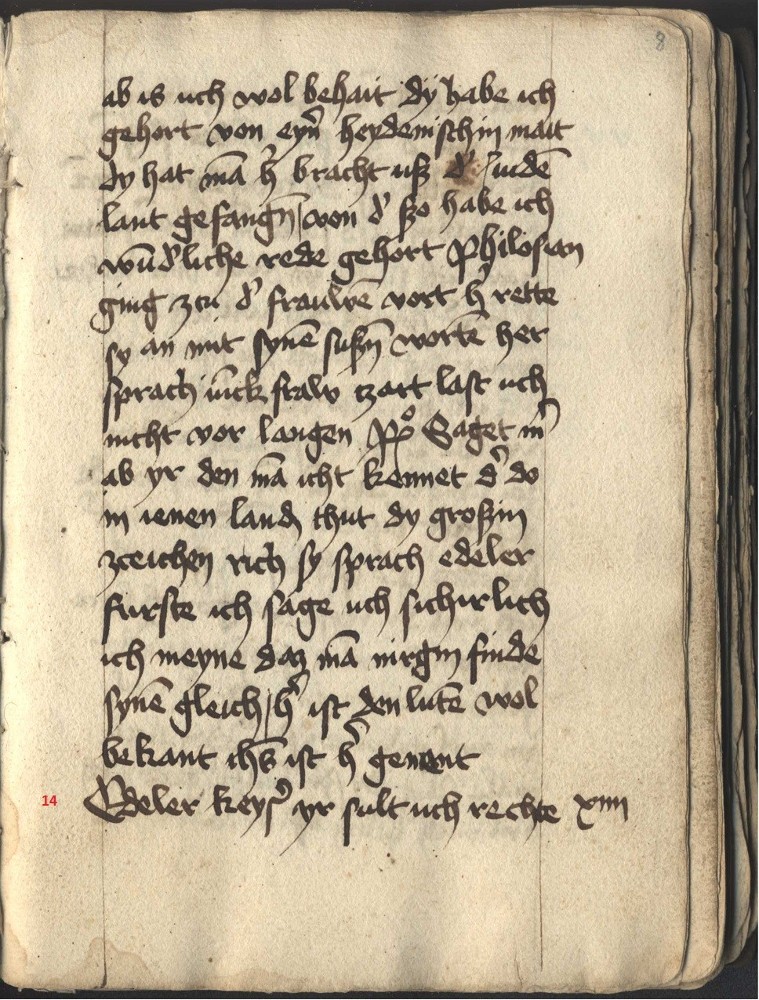 8
ab is uch wol behait dy habe ich
gehort von eyn̄ heydenischin mait
dy hat mā h̾ bracht usz d̾ Judē
lant gefangn̄ / von d̾ szo habe ich
wūd̾liche rede gehort Philosian
ging zcu d̾ frauwē vort h̾ rette
sy an mit synē suszn̄ wortē her
sprach frauw czart last uch
nicht vor langen Saget m̾
ab yr den mā icht kennet d̾ do
in ienen land thut dy groszin
zceichen rich sy sprach edeler
furste ich sage uch sichirlich
ich meyne daz mā nirgin finde
synē gleich / h̾ ist den lutē wol
bekant ih̄s ist h̾ genent
14 Edeler keys̾ yr sult uch rechte xiiii